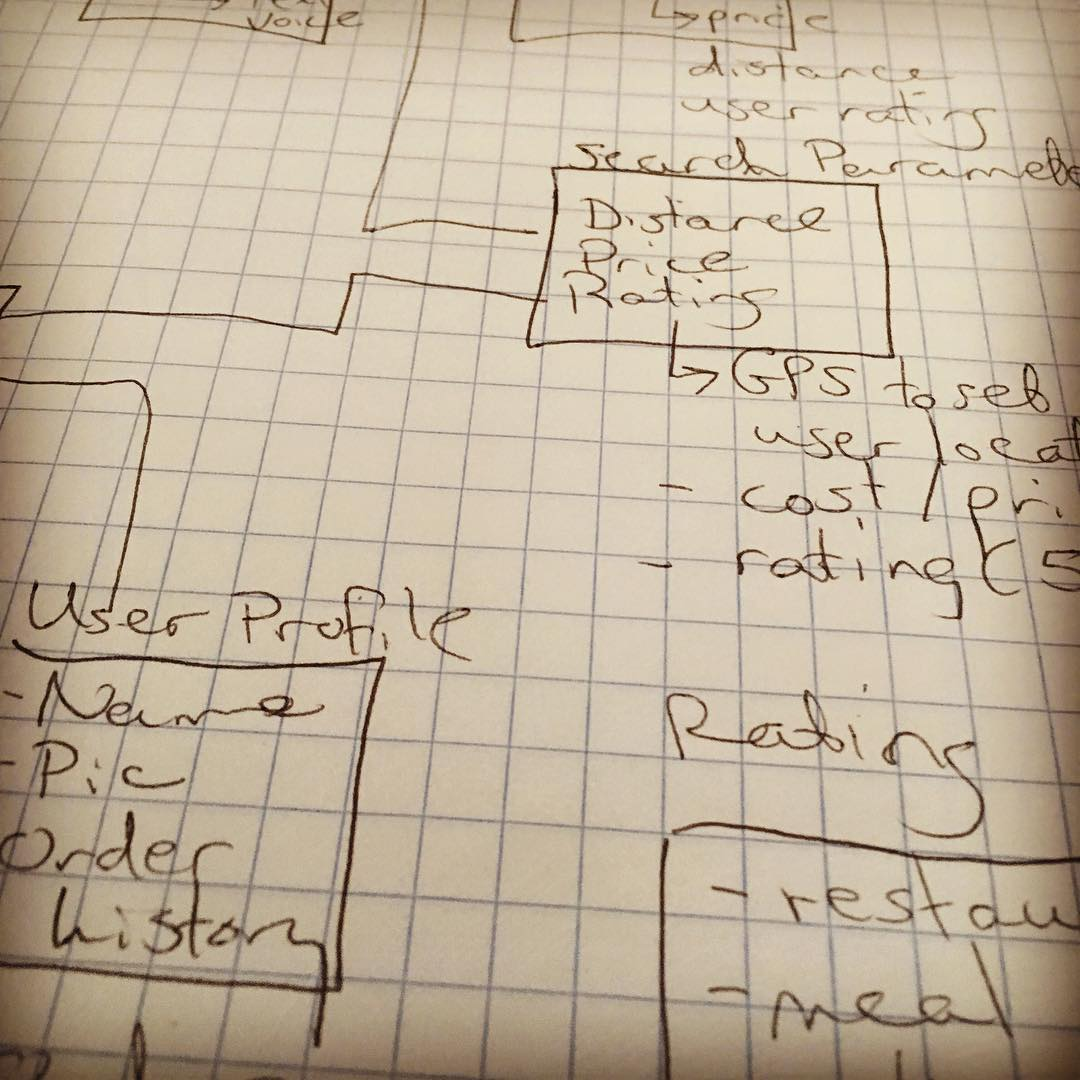 voice
price
distance
user rating
Search Paramete
Distance
Price
Rating
GPS to set
user locat
- cost / pri
- rating (5
User Profile
- Name
- Pic
Order
history
Rating
- restau
- meal